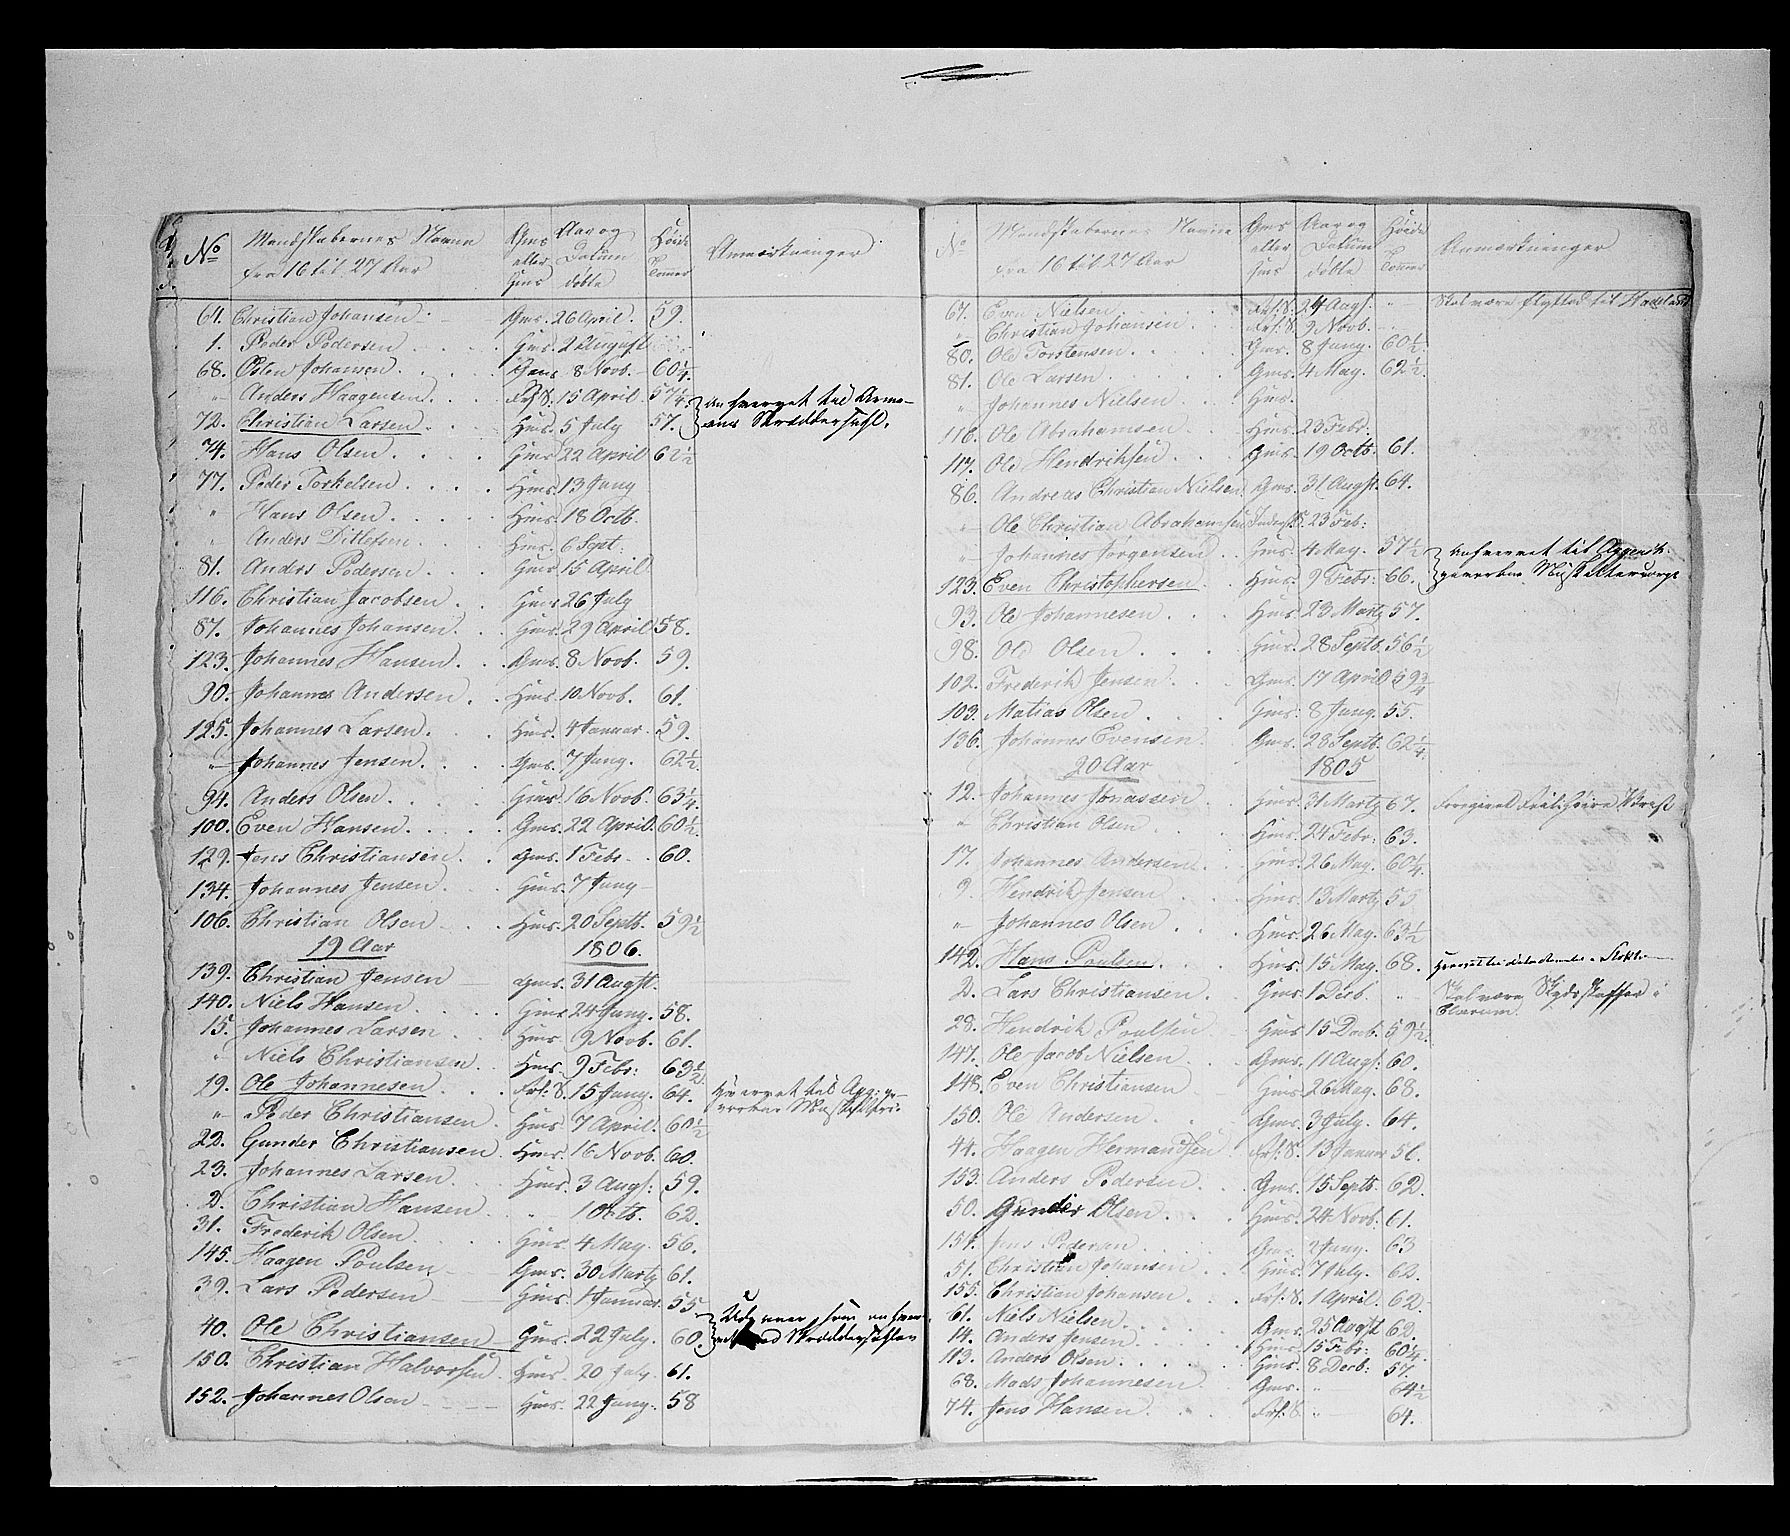 No Mandskabernes Navne fra 16 til 27 Aar Gms eller Hms Aar og Datum døbte Høide Tomer Anmærkninger
61. Christian Johansen Gms. 26 April. 59.
1. Peder Pedersen Hms. 2 August
68. Osten Johansen Gms 8 Novb. 60 1/4.
" Anders Haagensen Frf. S. 15 April 57 1/4.
72. Christian Larsen Hms. 5 July 57. an hvervet til Arme-
ens Skrædderstuhl.
74. Hans Olsen Hms 22 April 61 1/2
77. Peder Torkelsen Hms. 13 Juny
" Hans Olsen Hms. 18 Octb.
" Anders Ditlefsen Hms. 6 Sept:
81. Anders Pedersen Hms 15 April
116. Christian Jacobsen Hms 26 July
87. Johannes Johansen Hms. 29 April 58.
123. Johannes Hansen Gms. 8 Novb. 59.
90. Johannes Andersen Hms. 10 Novb. 61.
125. Johannes Larsen Hms. 4 Januar. 59.
" Johannes Jensen Gms. 7 Juny. 62 1/2.
94. Anders Olsen Hms. 16 Novb. 63 1/4.
100. Even Hansen Gms. 22 April. 60 1/2.
129. Jens Christiansen Gms. 1 Febr 60.
134. Johannes Jensen Hms. 7 Juny
106. Christian Olsen Hms. 20 Septb. 59 1/2
19 Aar 1806.
139. Christian Jensen Gms. 31 Augst.
140. Niels Hansen Hms 24 Juny. 58.
15. Johannes Larsen Hms. 9 Novb. 61.
" Niels Christiansen Hms. 9 Febr: 63 1/2.
19. Ole Johannesen Frf. S. 15 Juny. 64. Hvervet til Agg: ge-
vorbne
" Peder Christiansen Hms. 7 April. 60 1/2
22. Gunder Christiansen Hms. 16 Novb. 60.
23. Johannes Larsen Hms. 3 Augs: 59.
2. Christian Hansen " 1 Octb. 62.
31. Frederik Olsen Hms. 4 May. 56.
145. Haagen Poulsen Gms. 30 Martz 61.
39. Lars Pedersen Hms. 1 Januar. 55
40. Ole Christiansen Hms. 22 July. 60. som
ved Skrædderstuhlen
150. Christian Halvorsen Hms. 20 July. 61.
152. Johannes Olsen Hms. 22 Juny. 58
No Mandskabernes Navne fra 16 til 27 Aar Gms eller Hms Aar og Datum døbte Høide Tomer Anmærkninger
67. Even Nielsen Frf. S. 24 Augs: " Skal være flyttet til Hadeland
" Christian Johansen Frf. S. 9 Novb.
80. Ole Torstensen Gms. 8 Juny. 60 1/2.
81. Ole Larsen Gms. 4 May. 62 1/2.
" Johannes Nielsen Hms.
116. Ole Abrahamsen Hms. 23 Febr:
117. Ole Hendriksen Gms. 19 Octb. 61.
86. Andreas Christian Nielsen Gms. 31 Augst. 64.
" Ole Christian Abrahamsen Inderst S. 23 Feb:
" Johannes Jørgensen Hms. 4 May. 57 1/2 anhvervet til Aggersh.
123. Even Christophersen Hms. 9 Febr: 66. gevorbne
93. Ole Johannesen Hms. 23 Martz 57.
98. Ole Olsen Hms. 28 Septb. 56 1/2
102. Frederik Jensen Gms. 17 April 59 3/4
103. Matias Olsen Hms. 8 Juny. 55.
136. Johannes Evensen Gms. 28 Septb. 62 1/4
20 Aar 1805
12. Johannes Jonassen Hms. 31 Martz 67.
" Christian Olsen Hms. 24 Febr. 63.
17. Johannes Andersen Hms. 26 May. 60 1/4.
9. Hendrik Jensen Hms. 13 Martz 55
" Johannes Olsen Hms. 26 May. 63 1/2
142. Hans Poulsen Hms. 15 May. 68.
2. Lars Christiansen Hms. 1 Decb. " Skal være Skydsskaffer i
28. Hendrik Poulsen Hms. 15 Decb. 59 1/2.
147. Ole Jacob Nielsen Gms. 11 Augs: 60.
148. Even Christiansen Hms. 26 May. 68.
150. Ole Andersen Gms. 3 July. 64.
44. Haagen Hermandsen Frf. S. 13 Januar 51.
153. Anders Pedersen Gms. 15 Septb. 62.
50. Gunder Olsen Hms. 24 Novb. 61.
154. Jens Pedersen Gms. 2 Juny. 63
51. Christian Johansen Hms. 7 July. 62.
155. Christian Johansen Frf. S. 1 April. 62.
61. Niels Nielsen Gms. 25 Augst 62.
14. Anders Jensen Hms. 15 Febr: 60 1/4.
113. Anders Olsen Hms. 8 Decb: 57.
68. Mads Johannesen Gms. " 64 1/2
74. Jens Hansen Frf. S. " 64.